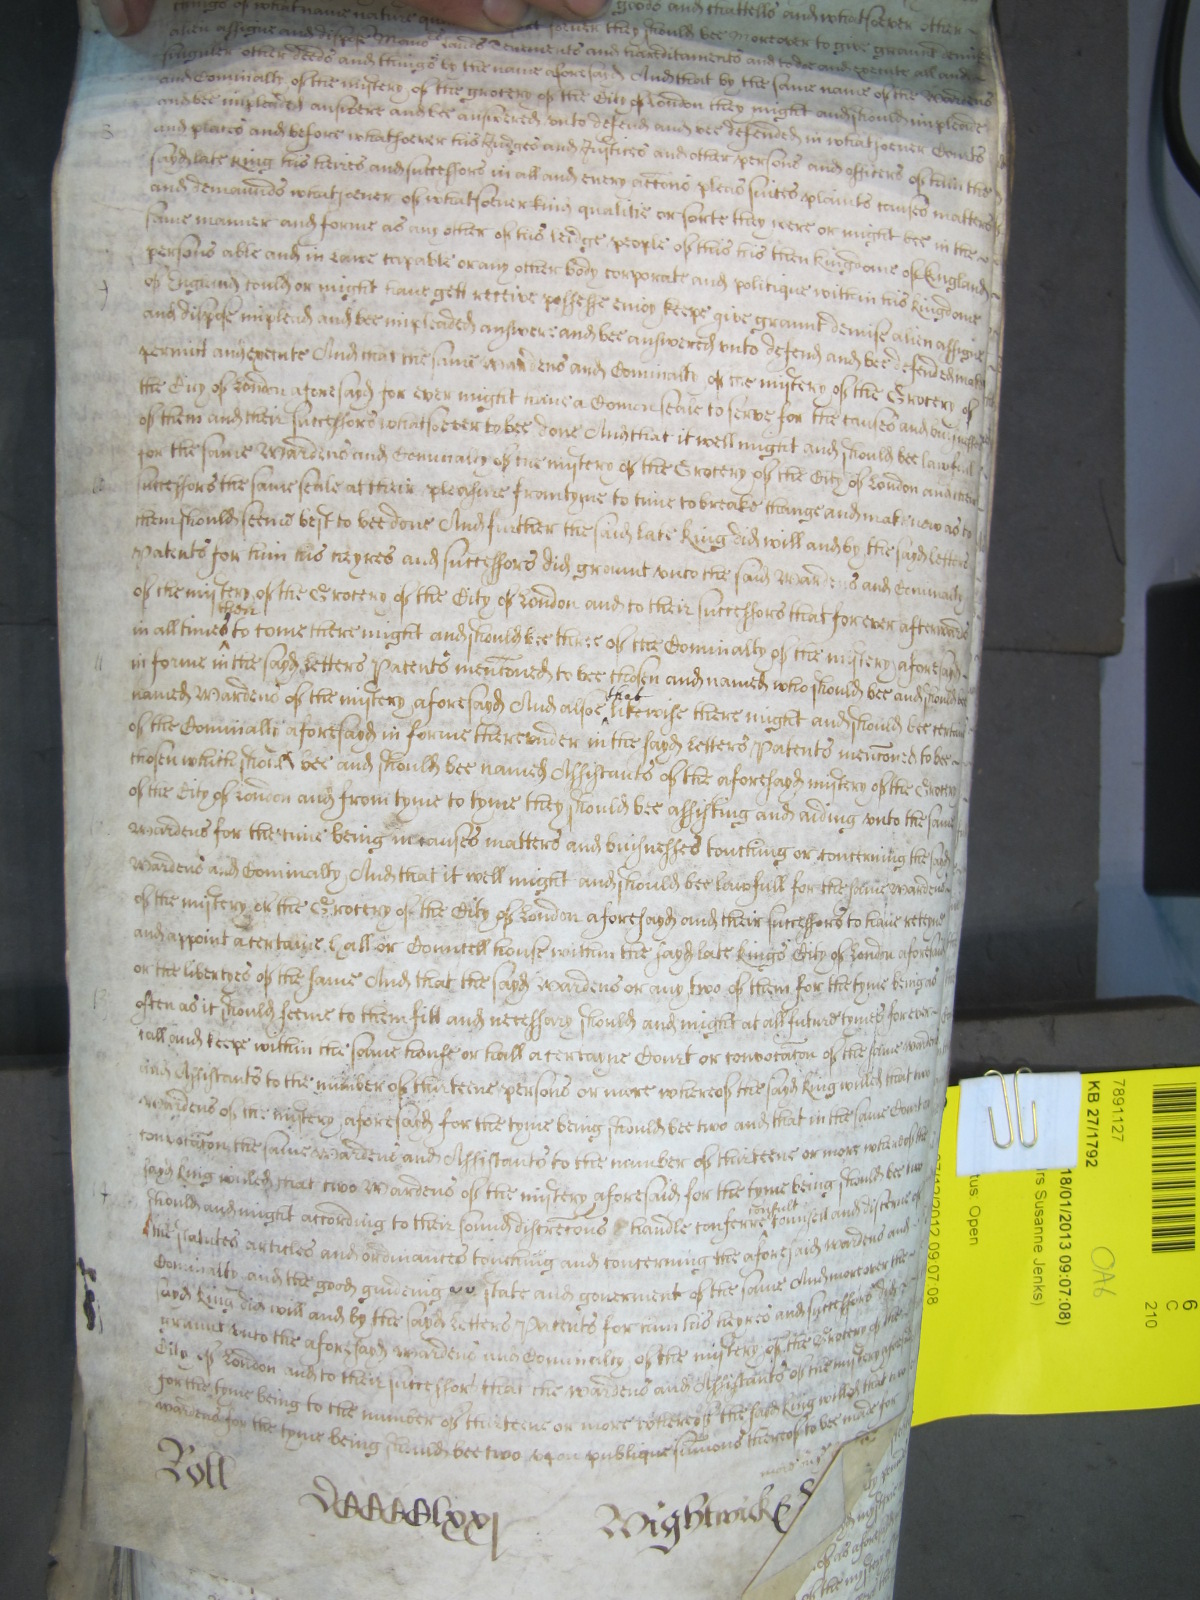 things of what name nature goods and chattells and whatsoever other
alien assigne and dispose Mano's Lands Tenements and hereditaments and to doe and execute all and
singuler other deeds and things by the name aforesaid And that by the same name of the Wardens
and Cominalty of the mistery of the grocery of the City of London they might and should impleade
and bee impleaded answere and bee answered vnto defend and bee defended in whatsoever Courts
and places and before whatsoever his Judges and Justices and other persons and officers of him the
sayd late King his heires and successors in all and every accons pleas suites plaints causes matters
and demaunds whatsoever of whatsoever kind qualitie or sorte they were or might bee in the
same manner and forme as any other of his leidge people of this his then kingdome of England
persons able and in Lawe capable or any other body corporate and politique within his kingdome
of England could or might have gett receive possesse enioy keepe give graunt demise alien assigne
and dispose implead and bee impleaded answere and bee answered vnto defend and bee defended
permitt and execute And that the same Wardens and Cominalty of the mistery of the Grocery of
the City of London aforesayd for ever might have a Comon seale to serve for the causes and businesses
of them and their successors whatsoever to bee done And that it well might and should bee lawfull
for the same Wardens and Cominalty of the mistery of the Grocery of the City of London and their
successors the same seale at their pleasure from tyme to time to breake change and make new as to
them should seeme best to bee done And further the said late King did will and by the sayd letters
Patents for him his heyres and successors did graunt vnto the said Wardens and Cominalty
of the mistery of the Grocery of the City of London and to their successors that for ever afterwards
then
in all times to come there might and should bee three of the Cominalty of the mistery aforesayd
in forme in the sayd Letters Patents menconed to bee chosen and named who should bee and should bee
that
named Wardens of the mistery aforesayd And alsoe likewise there might and should bee certaine
of the Cominalty aforesayd in forme therevnder in the sayd Letters Patents menconed to bee
chosen which should bee and should bee named Assistants of the aforesayd mistery of the Grocery
of the City of London and from tyme to tyme they should bee assisting and aiding vnto the same
Wardens for the time being in causes matters and buisnesses touching or concerning the sayd
Wardens and Cominalty And that it well might and should bee lawfull for the same Wardens
of the mistery of the Grocery of the City of London aforesayd and their successors to have reteyne
and appoint a certaine hall or Councell house within the sayd late Kings City of London aforesaid
or the libertyes of the same And that the sayd Wardens or any two of them for the tyme being as
often as it should seeme to them fitt and necessary should and might at all future tymes for ever
call and keepe within the same house or hall a certayne Court or convocacon of the same Wardens
and Assistants to the number of thirteene persons or more whereof the sayd King willed that two
Wardens of the mistery aforesayd for the tyme being should bee two and that in the same Court or
convocacon the same Wardens and Assistants to the number of thirteene or more whereof the
sayd King willed that two Wardens of the mistery aforesaid for the tyme being should bee two
consult
should and might according to their sound discrecons handle conferre councell and discerne of
the statutes articles and ordinances touching and concerning the aforesaid Wardens and
Cominalty and the good guideing state and goverment of the same And moreover the
sayd King did will and by the sayd Letters Patents for him his heyres and successors did
graunt vnto the aforesayd Wardens and Cominalty of the mistery of the Grocery of the
City of London and to their successors that the Wardens and Assistants of the mistery aforesaid
for the tyme being to the number of thirteene or more whereof the said King willed that two
Wardens for the tyme being should bee two vpon publique sumons thereof to bee made for
Roll
DCCCClxxj
Wightwicke
7891127
KB 27/1792
18/01/2013 09:07:08)
rs Susanne Jenks)
tus: Open
2012 09:07:08
OA6
6
C
210